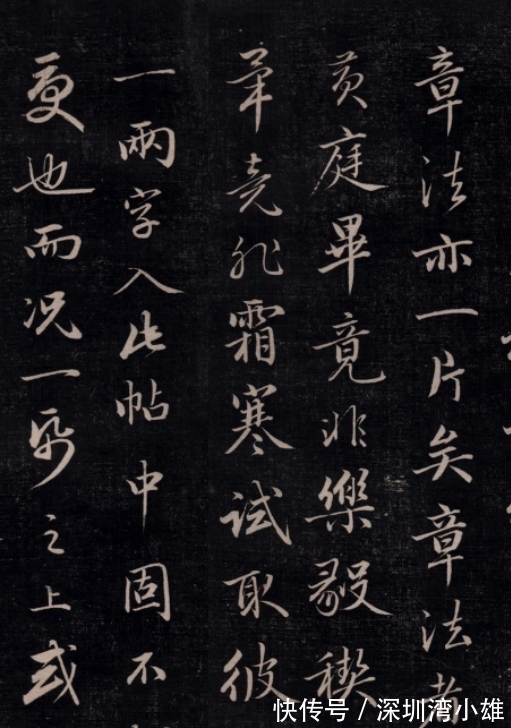 章法亦一片矣章法
黄庭畢竟非樂毅禊
竟非霜寒試取彼
一兩字入此帖中固不
更也而況一帋之上或
快传号／深圳湾小雄